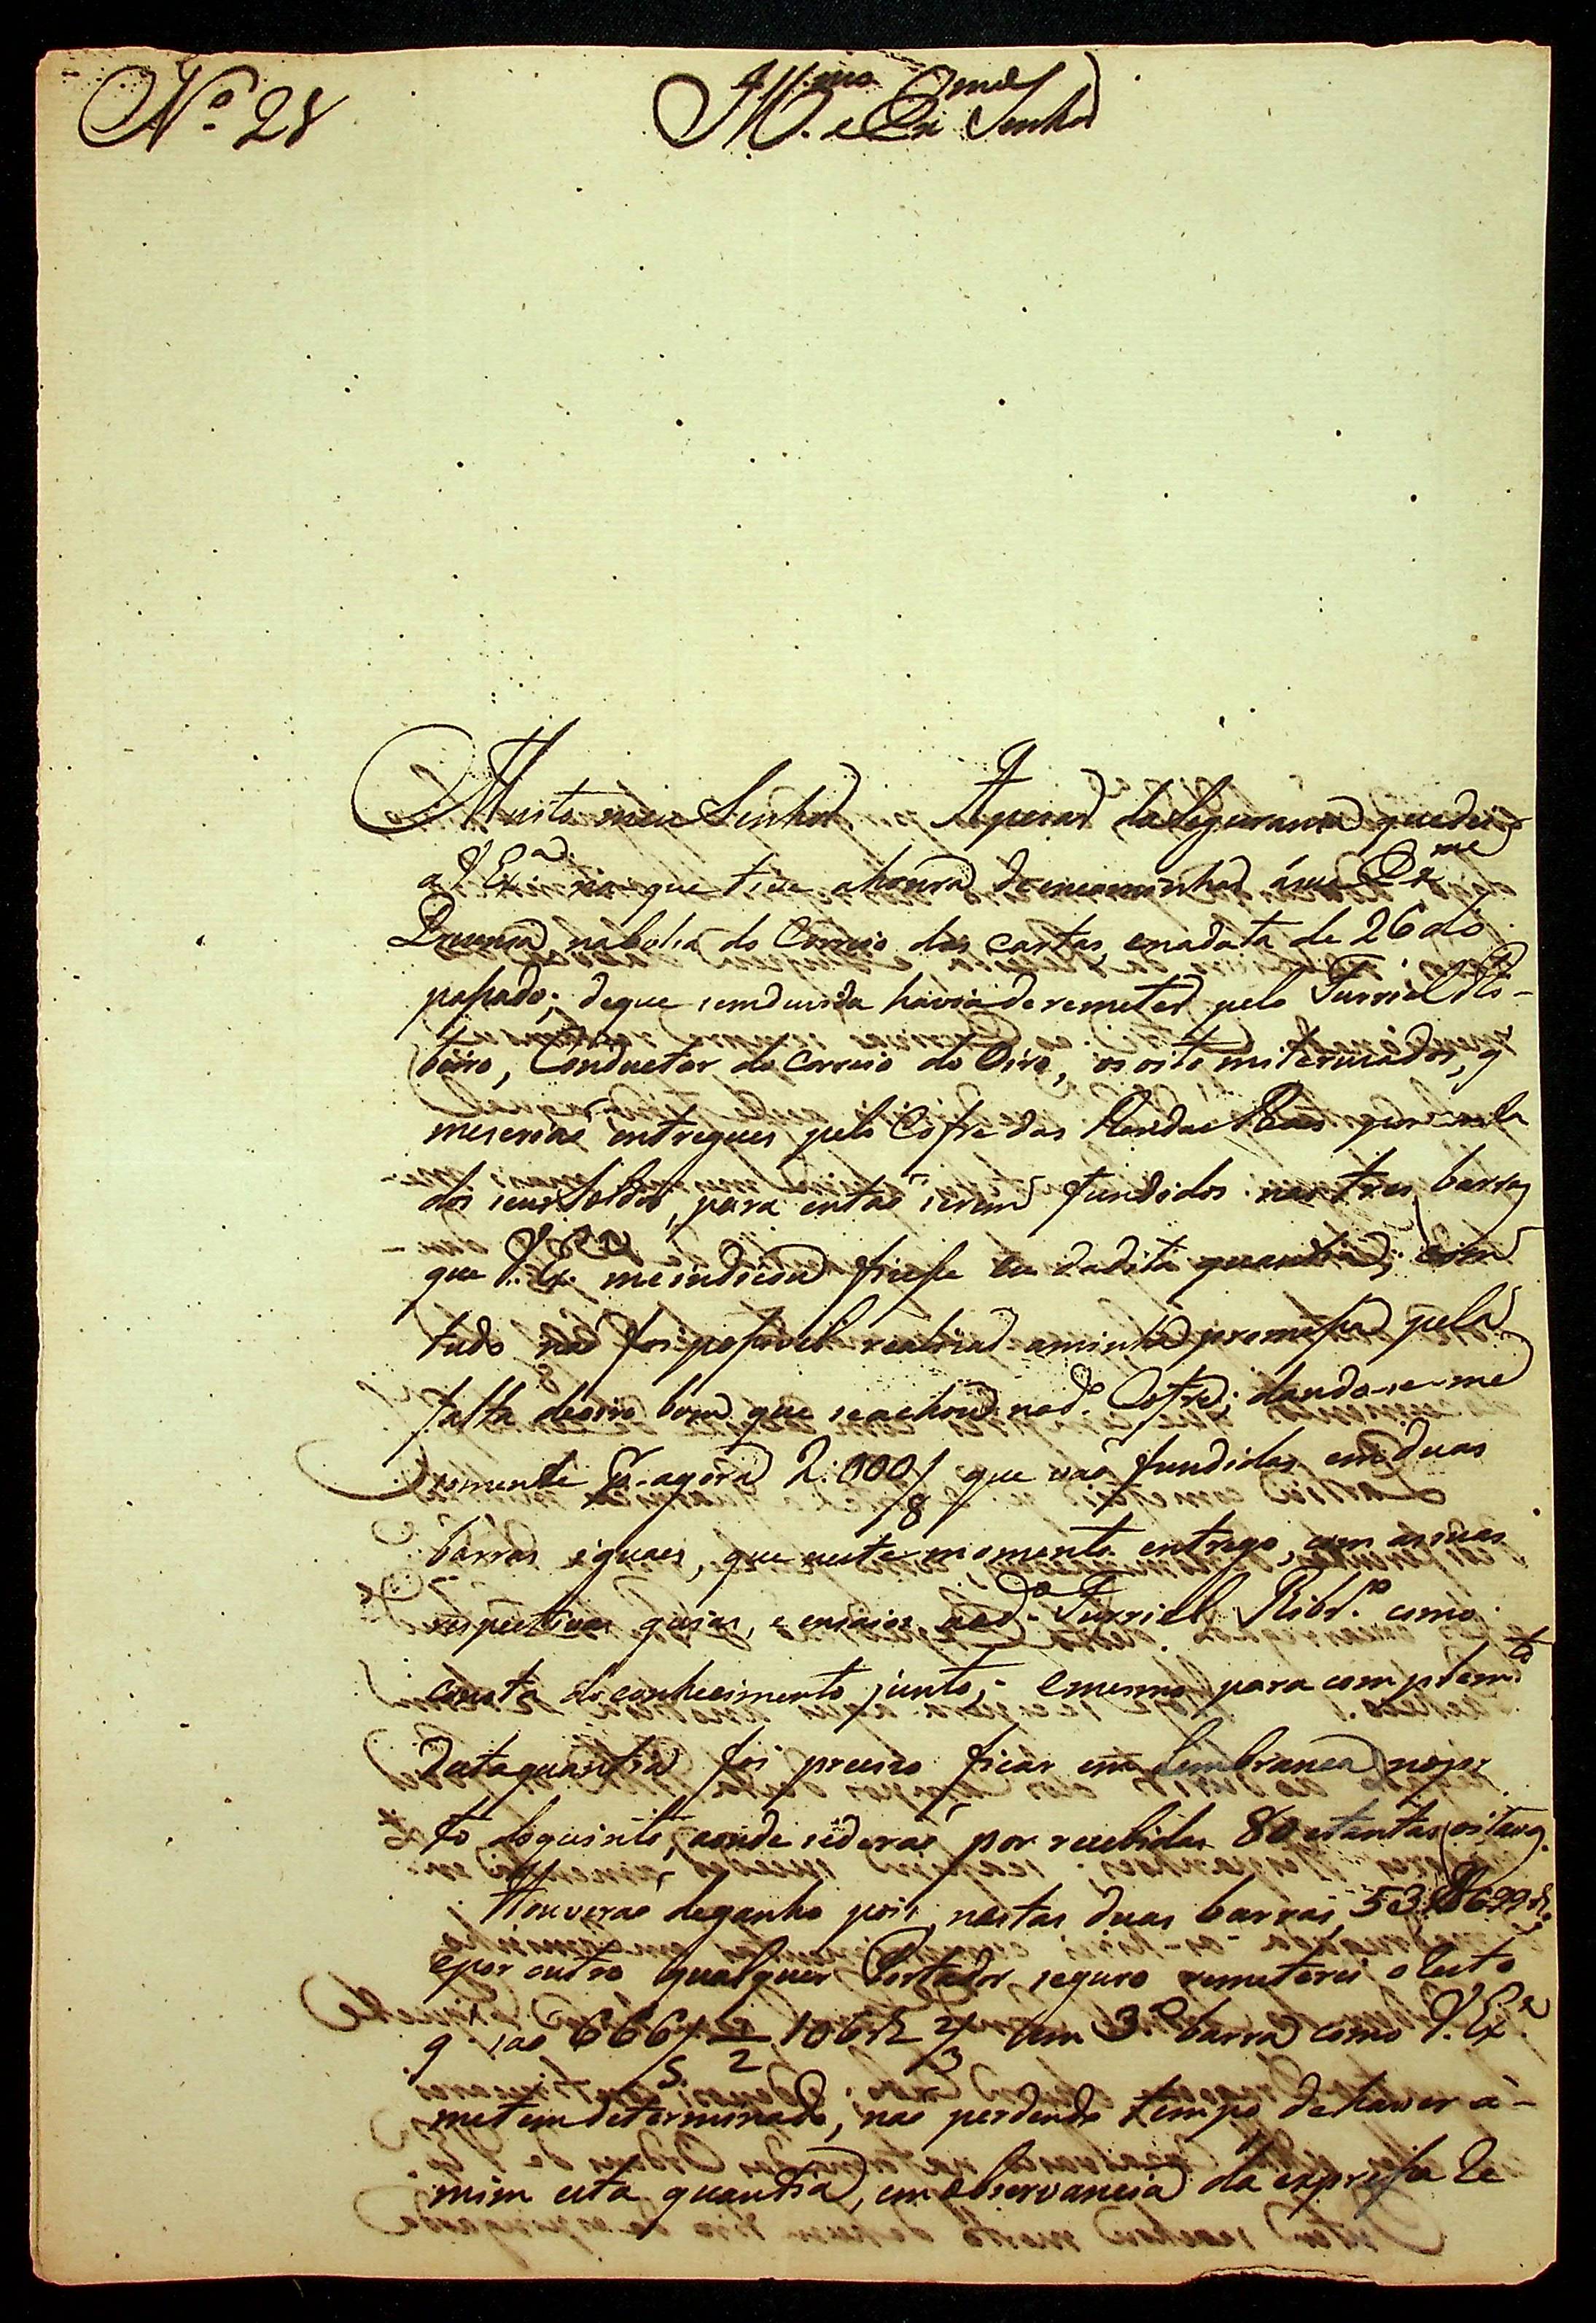 Nº 28
Ill.mo e Ex.mo Senhor
Muito meu Senhor Apezar da Segurança que dei
a V. Ex.a na que tive a honra de encaminhar á sua Ex.ma
Prezença na bolsa do Correio das cartas, em a data de 26 do
passado; de que sem duvida havia de remeter pelo Furriel Ri-
beiro, Conductor do Correio do Oiro, os oito mil cruzados, q
me seriaõ entregues pelo Cofre das Rendas Reaes por conta
dos seus Soldos, para entaõ serem fundidos nas tres barras
que V. Ex.a me indicou fizesse eu da dita quantia; com
tudo naõ foi possivel realizar a minha promessa pela
falta de oiro bom que se achou no d.o Cofre; dando-se-me
somente p.r agora 2:000/8 que vaõ fundidas em duas
barras iguaes, que neste momento entrego, com as suas
respectivas guias, e ensaios ao d.o Furriel Ribr.o como
consta do conhecimento junto; e mesmo para complem.to
desta quantia foi precizo ficar em lembrança no pr
to do quinto, aonde se deraõ por recebidas 80 e tantas oitavas.
Houveraõ de ganho pois, nestas duas barras, 53$699 r.s
e por outro qualquer Portador seguro remeterei o resto
q saõ 666/8 1/2 106 r 2/3 em 3.a barra como V. Ex.a
me tem determinado, naõ perdendo tempo de haver á-
mim esta quantia, em observancia da expressa Le